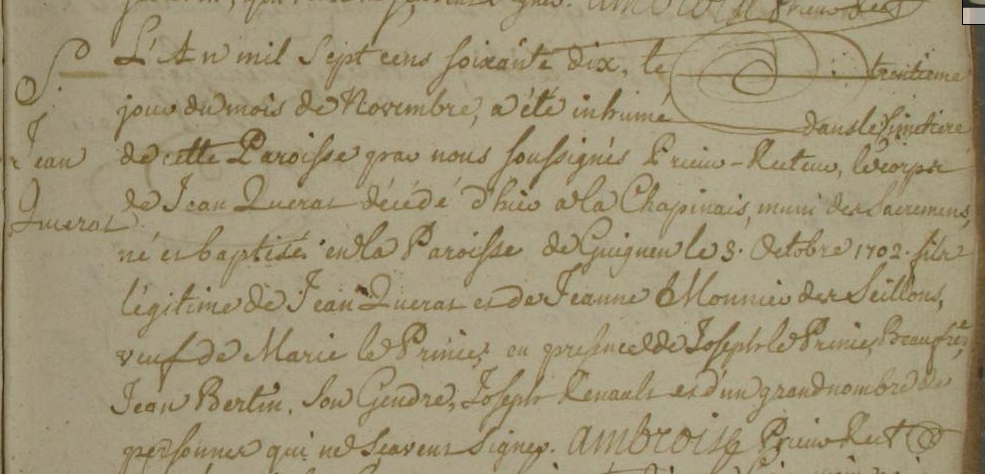 S.
Jean
Querat
L'An mil Sept cens soixante dix, le trentieme
jour du mois de Novembre, a été inhumé dans le Simetiere
de cette Paroisse par nous soussignés Prieur-Recteur, le corps
de Jean Querat décédé d'hier a la Chapinais, muni des Sacremens,
né et baptisé en la Paroisse de Guignen le 3. Octobre 1702. fils
légitime de Jean Querat et de Jeanne Monnier des Seillons,
veuf de Marie le Prince; en presence de Joseph le Prince, Beaufrere,
Jean Bertin, Son Gendre, Joseph Renault et d'un grand nombre de
personnes qui ne Scavent Signer. ambroise Prieur Rect